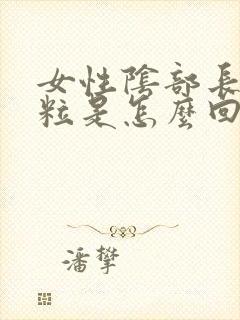 女性陰部長
粒是怎麼回
潘攀